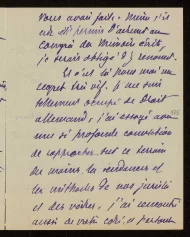 vous avait faite. Même, s'il
eût été permis d'acheter au
congrès du
je serais obligé d'y renoncer.
C'est là pour moi un
regret très vif. Je me suis
tellement occupé de droit
allemand, j'ai essayé avec
une si profonde conviction
de rapprocher sur ce terrain
du moins les tendances et
les méthodes de nos juristes
et des vôtres, j'ai rencontré
aussi de votre côté, et surtout